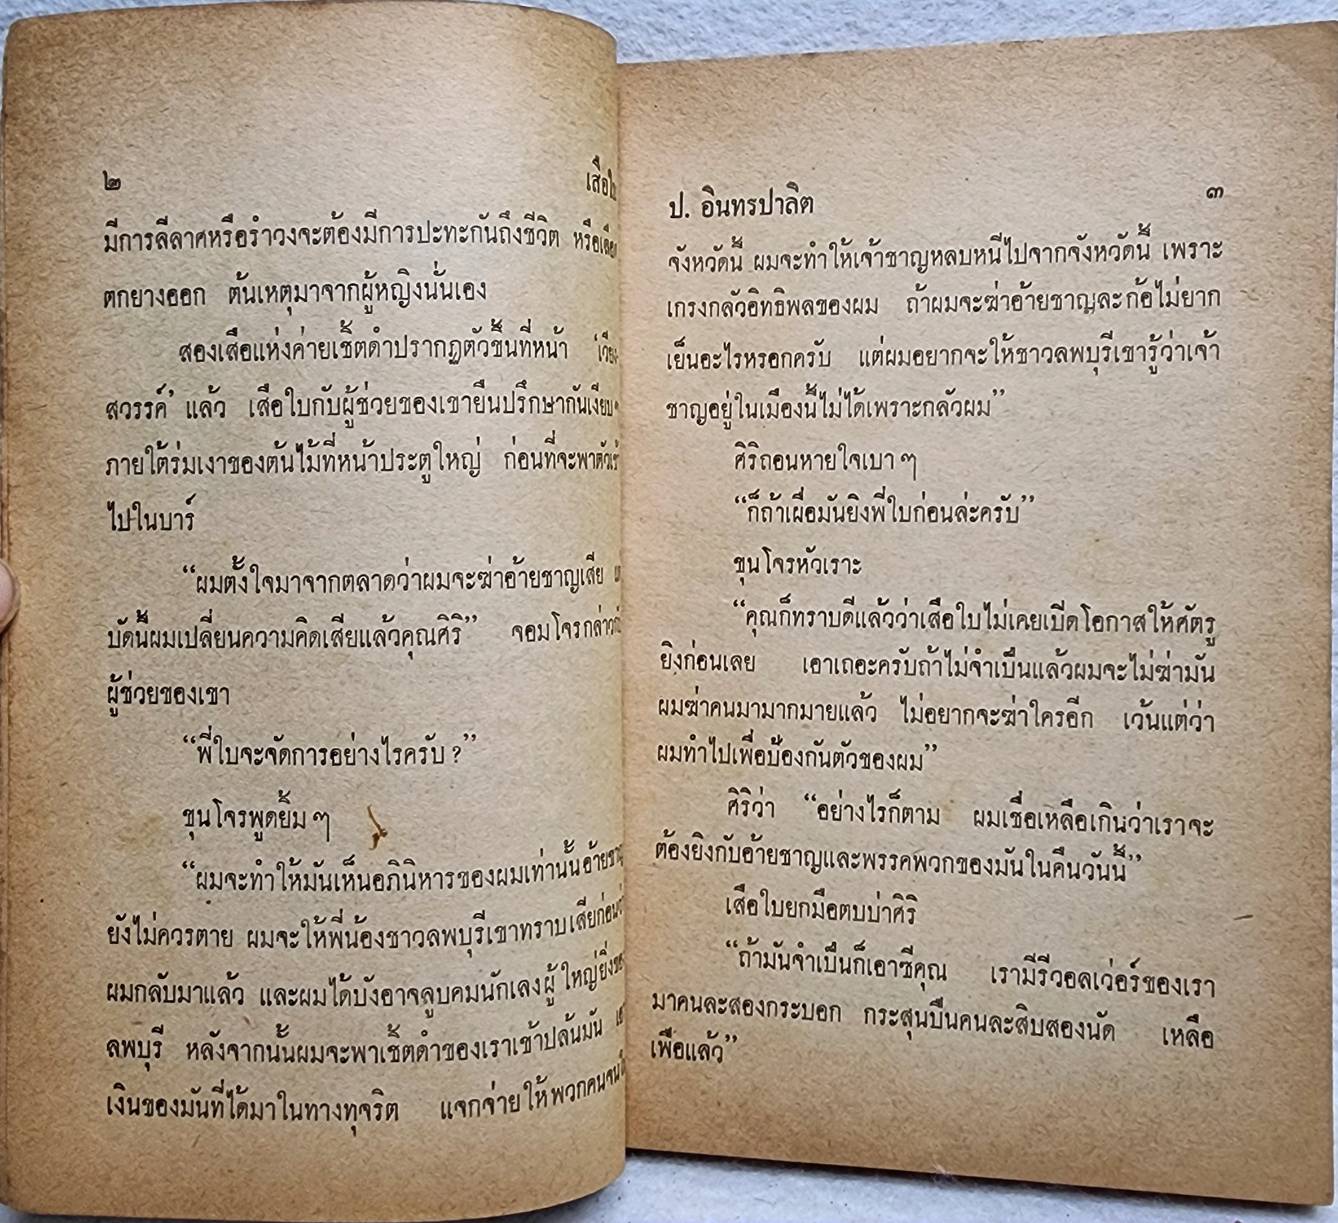 ๒
มีการลีลาศหรือรำวงจะต้องมีการปะทะกันถึงชีวิต หรือเลือด
ตกยางออก ต้นเหตุมาจากผู้หญิงนั่นเอง
สองเสือแห่งค่ายเช็ตดำปรากฏตัวขึ้นที่หน้า ‘เวียง-
สวรรค์’ แล้ว เสือใบกับผู้ช่วยของเขายืนปรึกษากันเงียบๆ
ภายใต้ร่มเงาของต้นไม้ที่หน้าประตูใหญ่ ก่อนที่จะพาตัว
ไปในบาร์
“ผมตั้งใจมาจากตลาดว่าผมจะฆ่าอ้ายชาญเสีย
บัดนี้ผมเปลี่ยนความคิดเสียแล้วคุณศิริ” จอมโจรกล่าว
ผู้ช่วยของเขา
“พี่ใบจะจัดการอย่างไรครับ ?”
ขุนโจรพูดยิ้ม ๆ
“ผมจะทำให้มันเห็นอภินิหารของผมเท่านั้น อ้ายชาญ
ยังไม่ควรตาย ผมจะให้พี่น้องชาวลพบุรีเขาทราบเสียก่อน
ผมกลับมาแล้ว และผมได้บังอาจลูบคมนักเลงผู้ใหญ่ยิ่ง
ลพบุรี หลังจากนั้นผมจะพาเช็ตดำของเราเข้าปล้นมัน
เงินของมันที่ได้มาในทางทุจริต แจกจ่ายให้พวกคนจน
ป. อินทรปาลิต ๓
จังหวัดนี้ ผมจะทำให้เจ้าชาญหลบหนีไปจากจังหวัดนี้ เพราะ
เกรงกลัวอิทธิพลของผม ถ้าผมจะฆ่าอ้ายชาญละก้อไม่ยาก
เย็นอะไรหรอกครับ แต่ผมอยากจะให้ชาวลพบุรีเขารู้ว่าเจ้า
ชาญอยู่ในเมืองนี้ไม่ได้เพราะกลัวผม”
ศิริถอนหายใจเบา ๆ
“ก็ถ้าเผื่อมันยิงพี่ใบก่อนล่ะครับ”
ขุนโจรหัวเราะ
“คุณก็ทราบดีแล้วว่าเสือใบไม่เคยเปิดโอกาสให้ศัตรู
ยิงก่อนเลย เอาเถอะครับถ้าไม่จำเป็นแล้วผมจะไม่ฆ่ามัน
ผมฆ่าคนมามากมายแล้ว ไม่อยากจะฆ่าใครอีก เว้นแต่ว่า
ผมทำไปเพื่อป้องกันตัวของผม”
ศิริว่า “อย่างไรก็ตาม ผมเชื่อเหลือเกินว่าเราจะ
ต้องยิงกับอ้ายชาญและพรรคพวกของมันในคืนวันนี้”
เสือใบยกมือตบบ่าศิริ
“ถ้ามันจำเป็นก็เอาซีคุณ เรามีรีวอลเว่อร์ของเรา
มาคนละสองกระบอก กระสุนปืนคนละสิบสองนัด เหลือ
เฟือแล้ว”